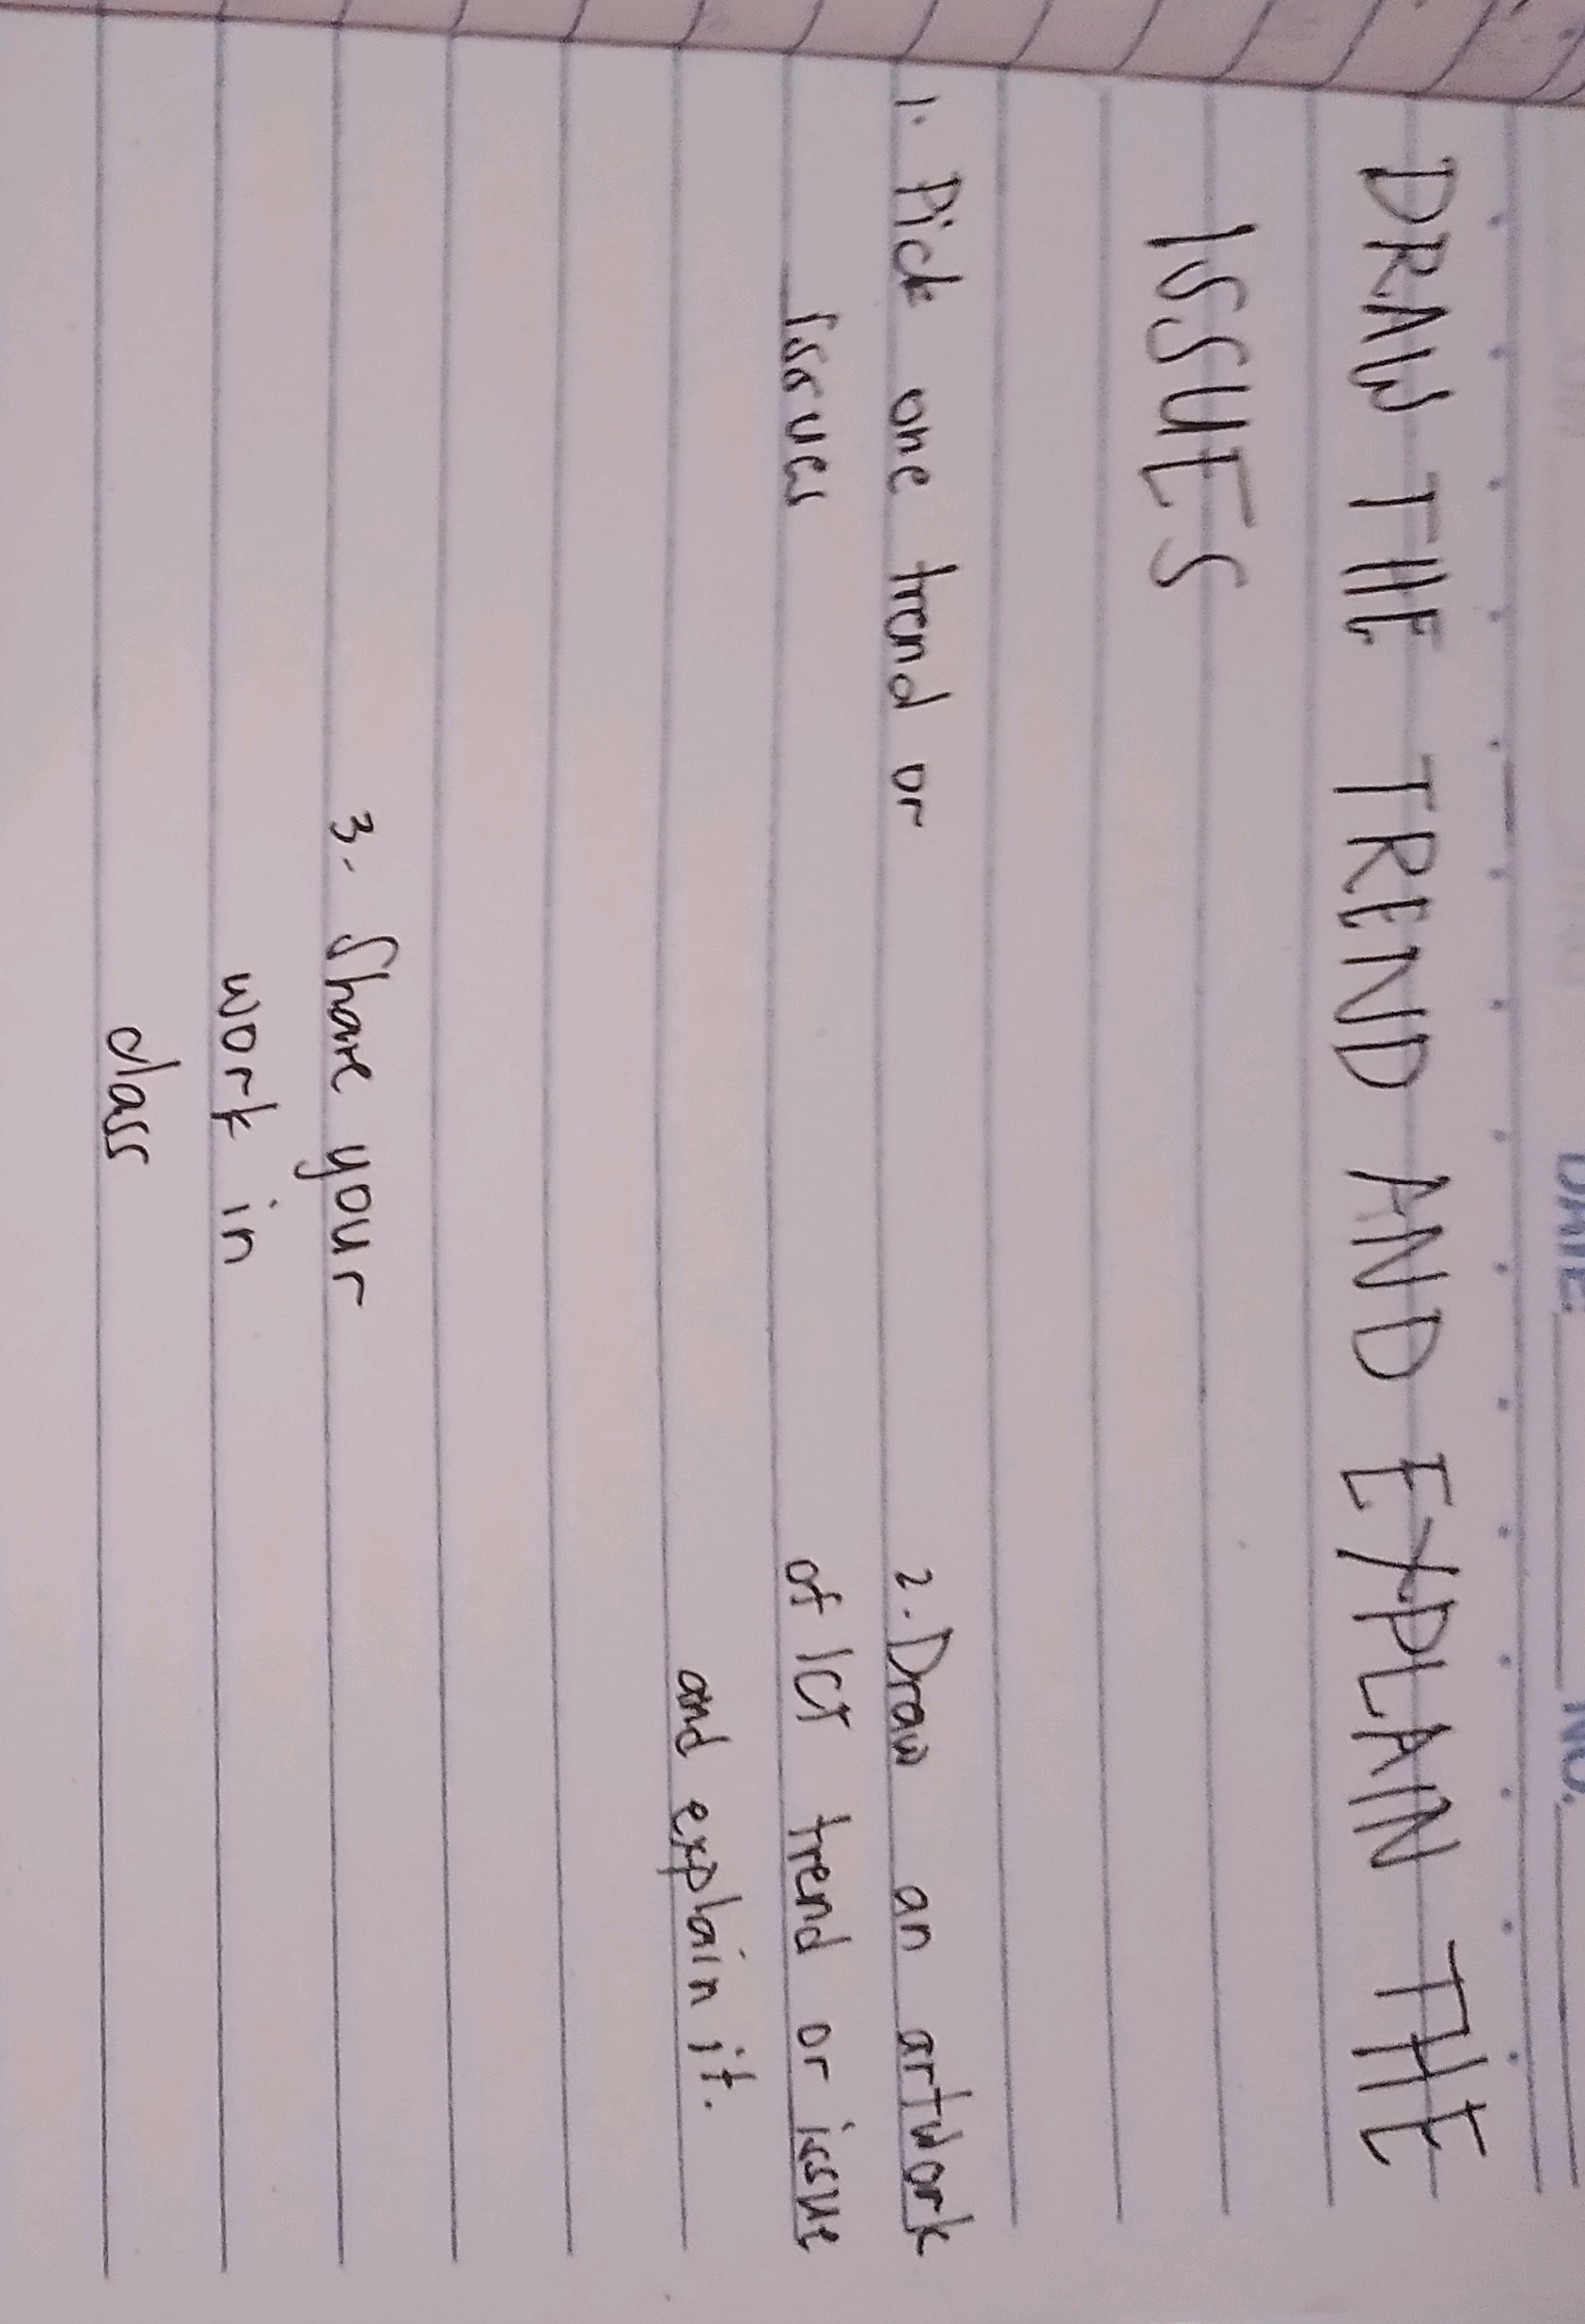 DATE: NO.
DRAW THE TREND AND EXPLAIN THE
ISSUES
1. Pick one trend or
Issues
2. Draw an artwork
of ICT trend or issue
and explain it.
3. Share your
work in
class